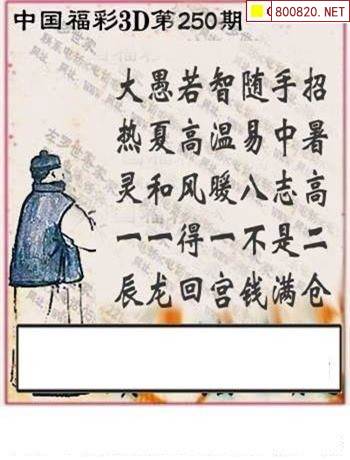 中国福彩3D第250期
800820.NET
大愚若智随手招
热夏高温易中暑
灵和风暖八志高
一一得一不是二
辰龙回宫钱满仓